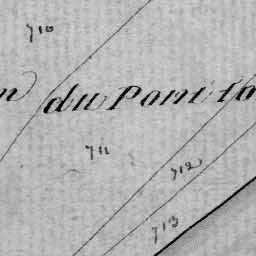 710
du Pont
711
712
713